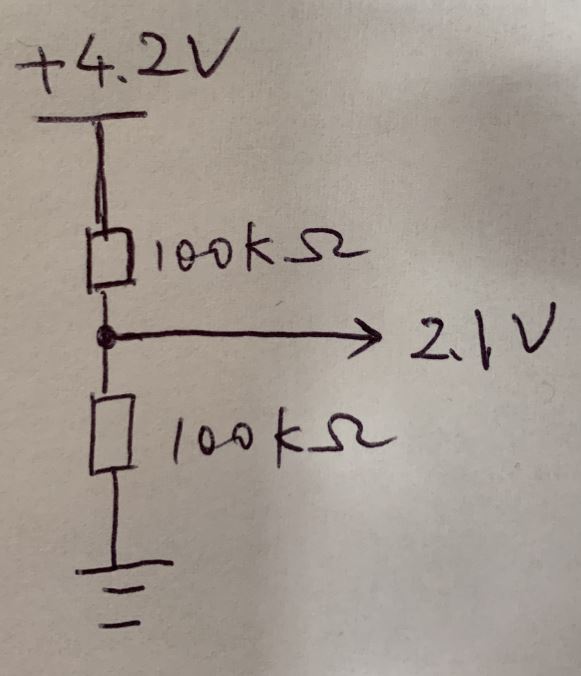 +4.2V
100kΩ
2.1V
100kΩ